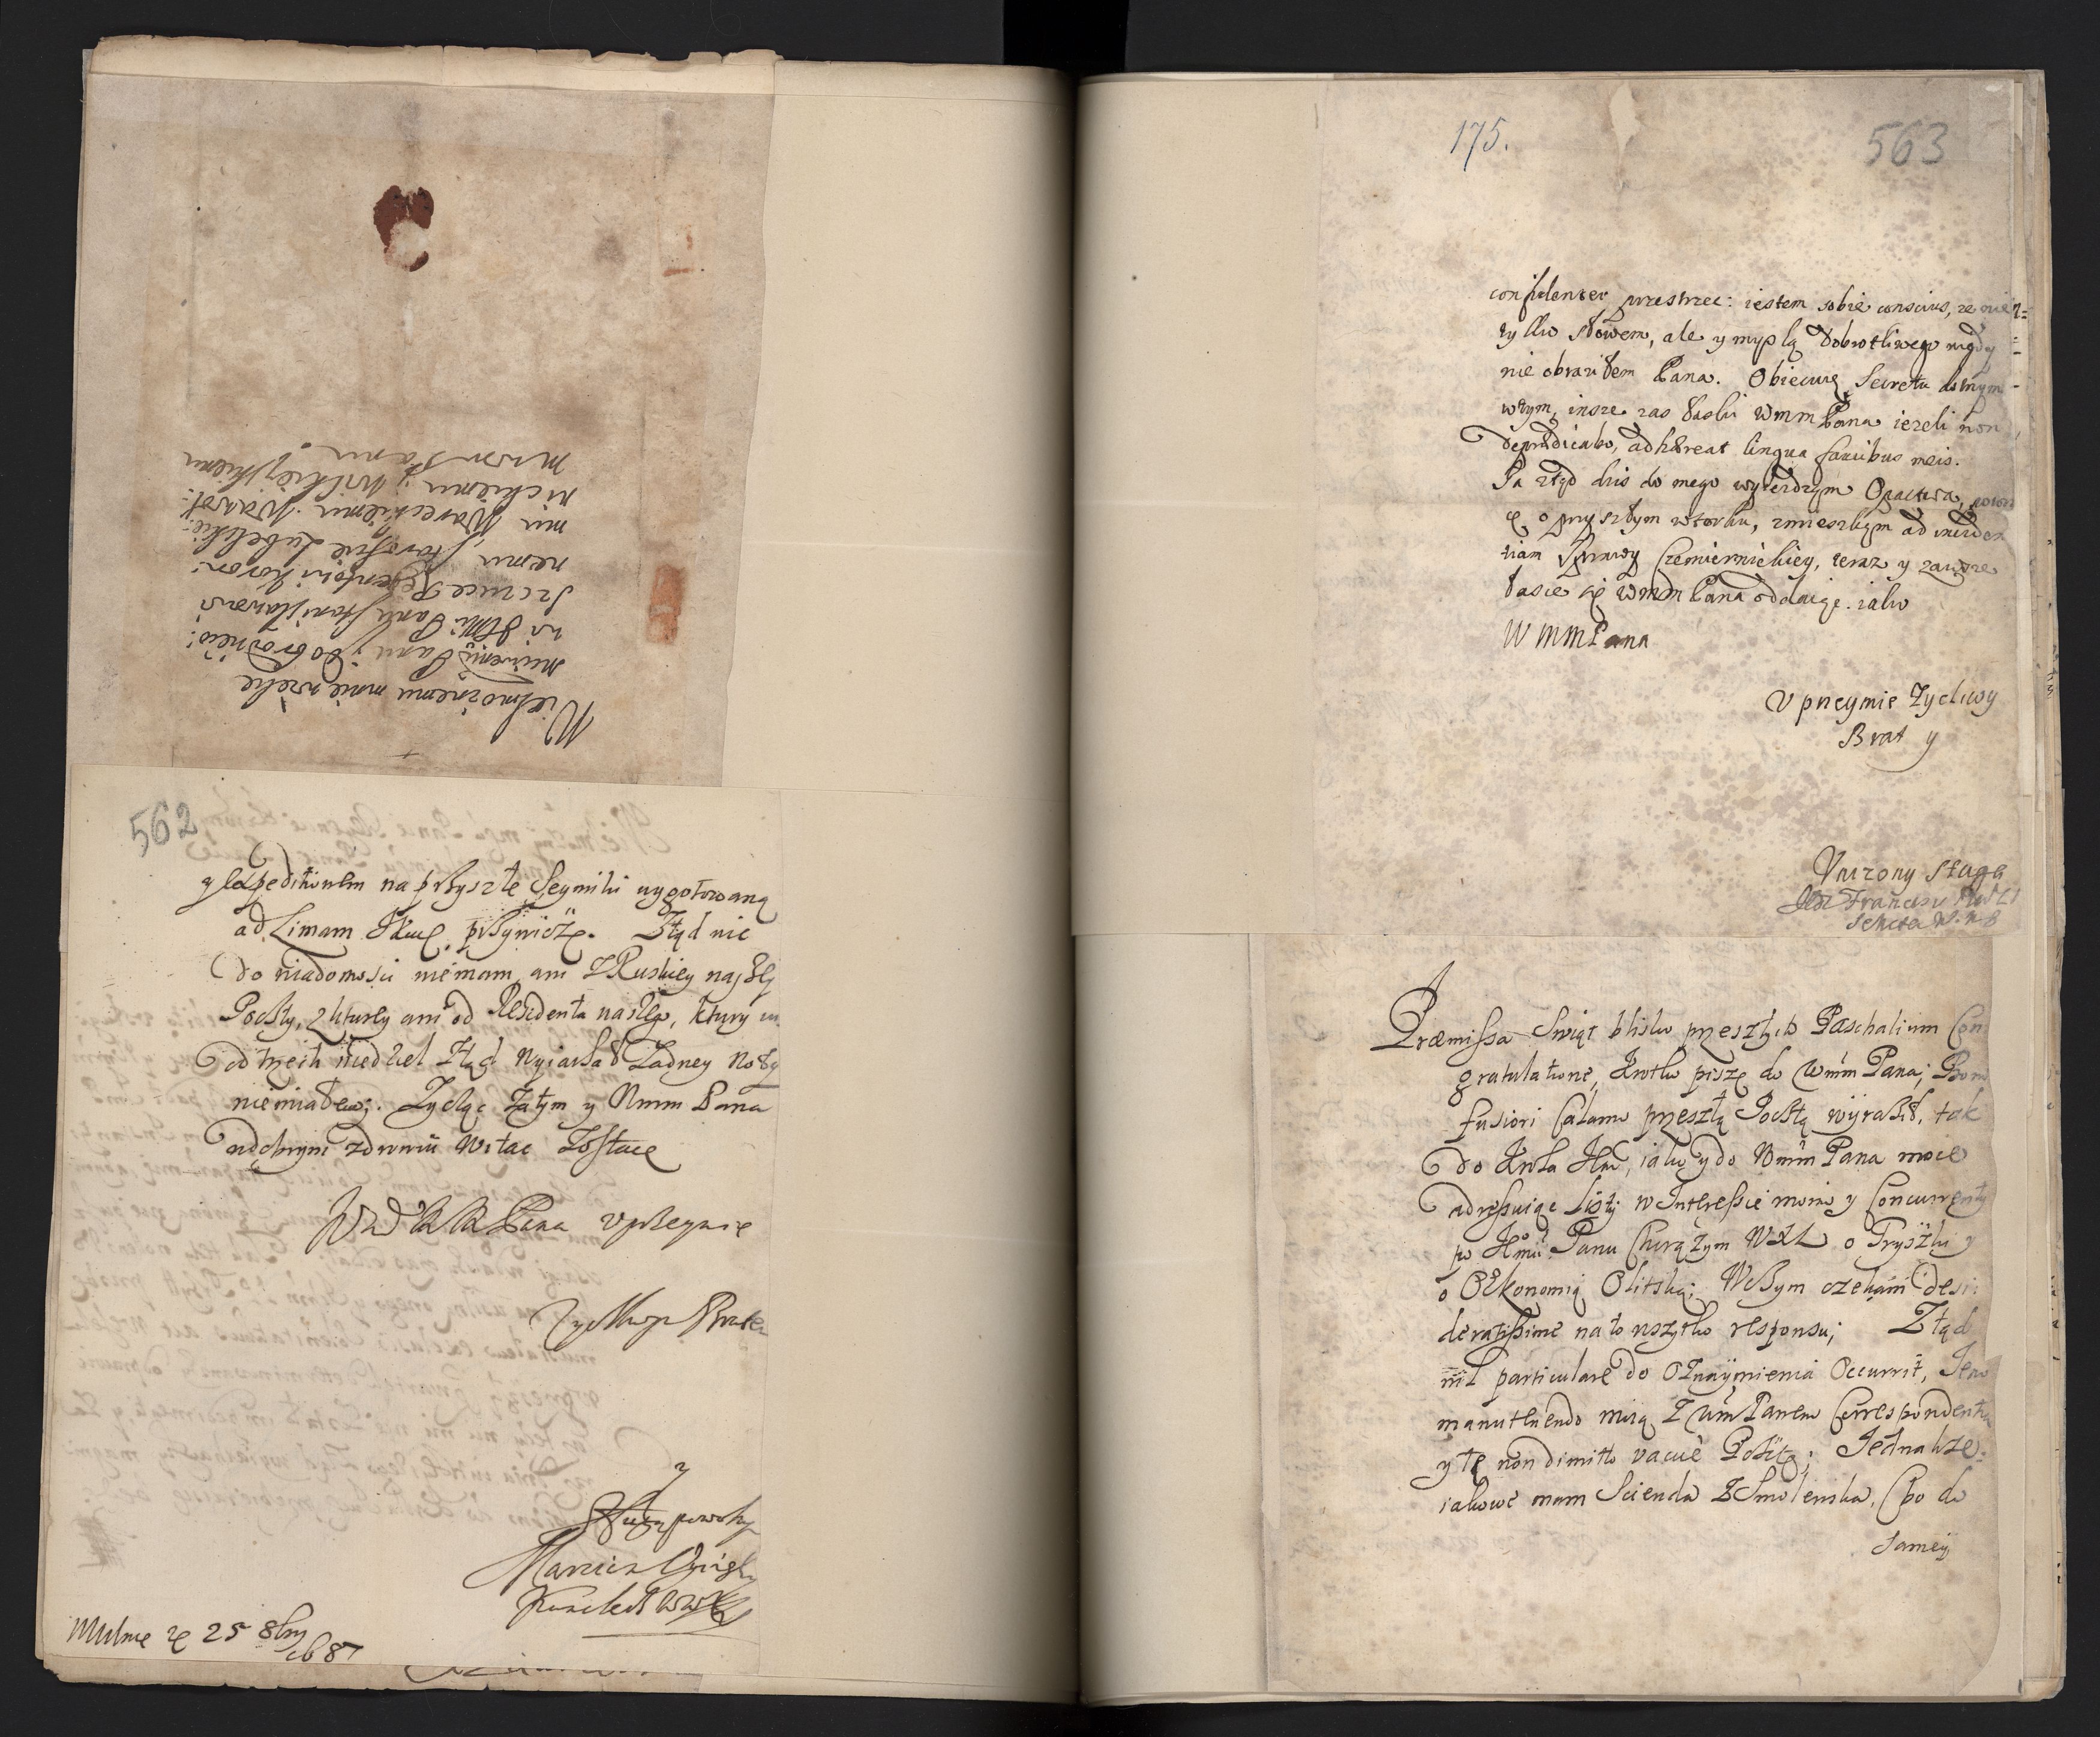 Wielmożnemu mnie wielce
Miłościwemu Panu y dobrodzieiowi
Jmci Panu Stanisławowi
Szczuce Regentowi Koron:
nemu, Staroscie Lubelskie:
mu Wareckiemu Wawol:
nickiemu y Wilkiyskiemu
Mwm Panu
562
y Expeditionem na przyszłe Seymiki wygotowaną
ad Limam JKMci przywiozę. Ztąd nic
do wiadomosci niemam, ani z Ruskiey naszey
Poczty, z ktorey ani od Residenta naszego, ktory iuż
od trzech niedziel ztąd wyiachał żadney
niemiałem. Życząc zatym y Wmm Pana
w dobrym zdrowiu witac zostaię
WMMMPana uprzeymie
Życzliwym Bratem
y
Sługą powolnym
Marcin Oginski
Kanclerz WWXL
Wilnie 25 8bry
1687
175.
563
confidenter przestrzec: iestem sobie conscius, że nie
tylko słowem, ale y myslą dobrotliwego nigdy
nie obraziłem Pana. Obiecuię Secretu
w tym, insze zas łaski Wmm Pana ieżeli non
depraedicabo, adhaereat lingua faucibus meis.
Ja ztąd dzis do mego wyieżdżam Opactwa,
o przyszłym wtorku,
Sprawy Czemiernickiey, teraz y zawsze
łasce się Wmm Pana oddaiąc. iako
WMMPana
Uprzeymie Życzliwy
Brat y
Unizony Sługa
Praemissa Swiąt blisko przeszłych Paschalium Con
gratulatione, Krotko piszę do Wmm Pana; Bom
fusiori Calamo przeszłą Pocztą wyraził, tak
do Krola JMci, iako y do Wmm Pana moie
adressuiąc listy w Interessie moim y Concurrenty
po Jmci Panu Chorązym WXL o Pryszlu y
o OEkonomią Olitską; W czym czekam desi:
deratissime na to wszytko responsu; Ztąd
nil particulare do Oznaymienia Occurrit, Jeno
manutenendo moią z Wm Panem Correspondentią
y tę non dimitto vacuè Pocztę; Jednakże
iakowe mam Scienda z Smolenska, (bo do
Samey